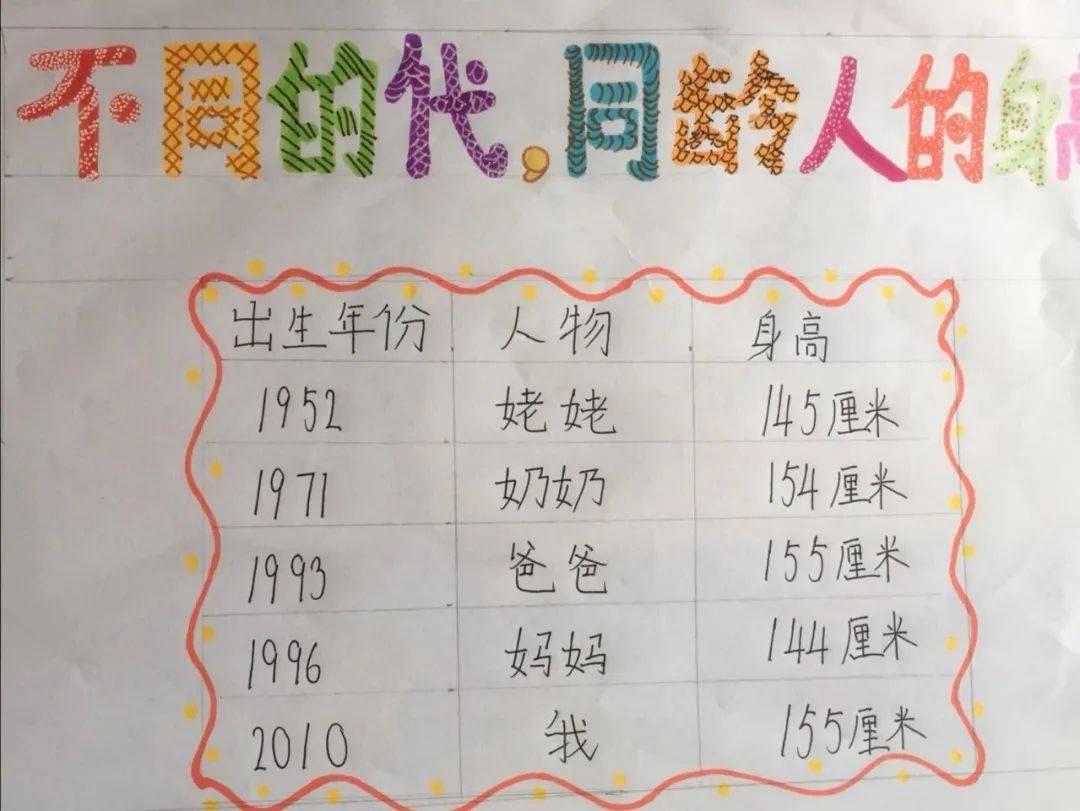 不同的代,同龄人的身高
出生年份 人物 身高
1952 姥姥 145厘米
1971 奶奶 154厘米
1993 爸爸 155厘米
1996 妈妈 144厘米
2010 我 155厘米